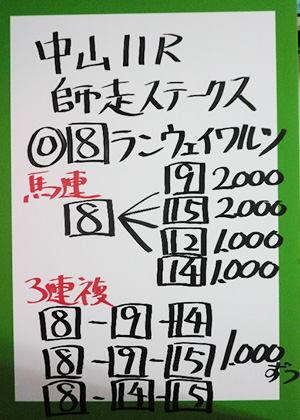 中山11R
師走ステークス
◎8ランウェイワルツ
馬連
9 2.000
8 < 15 2.000
12 1.000
14 1.000
3連複
8-9-14
8-9-15 1.000ずつ
8-14-15